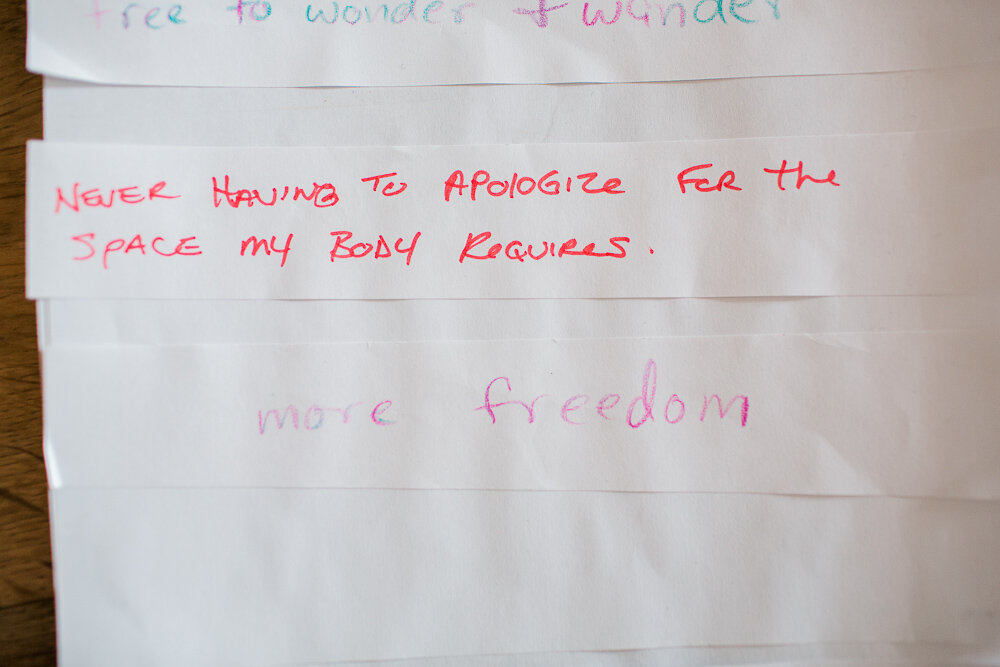 free to wonder + wander
NEVER HAVING TO APOlOGIZe FOR the
SPACE MY BODY ReQUIReS.
more freedom